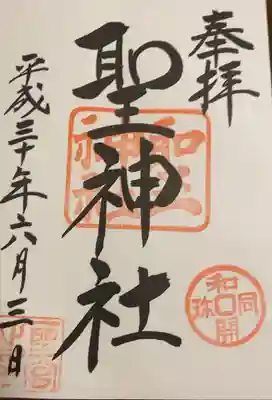 奉拝
聖神社
平成三十年六月三日
和同開珎